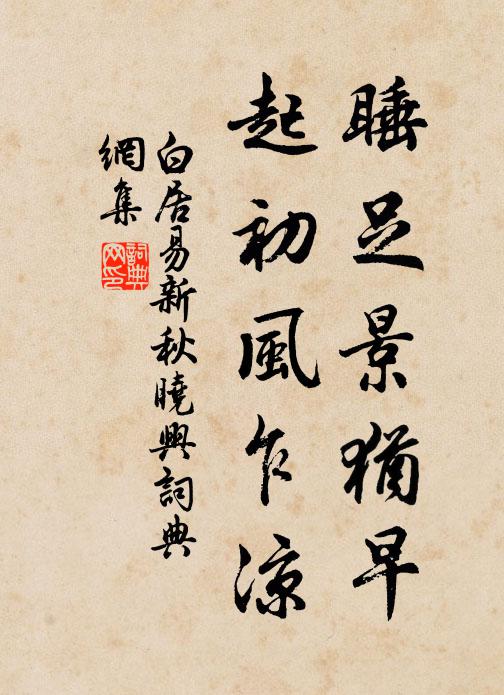 睡足景猶早
起初風乍涼
白居易新秋曉興詞典
網集
詞典
网印